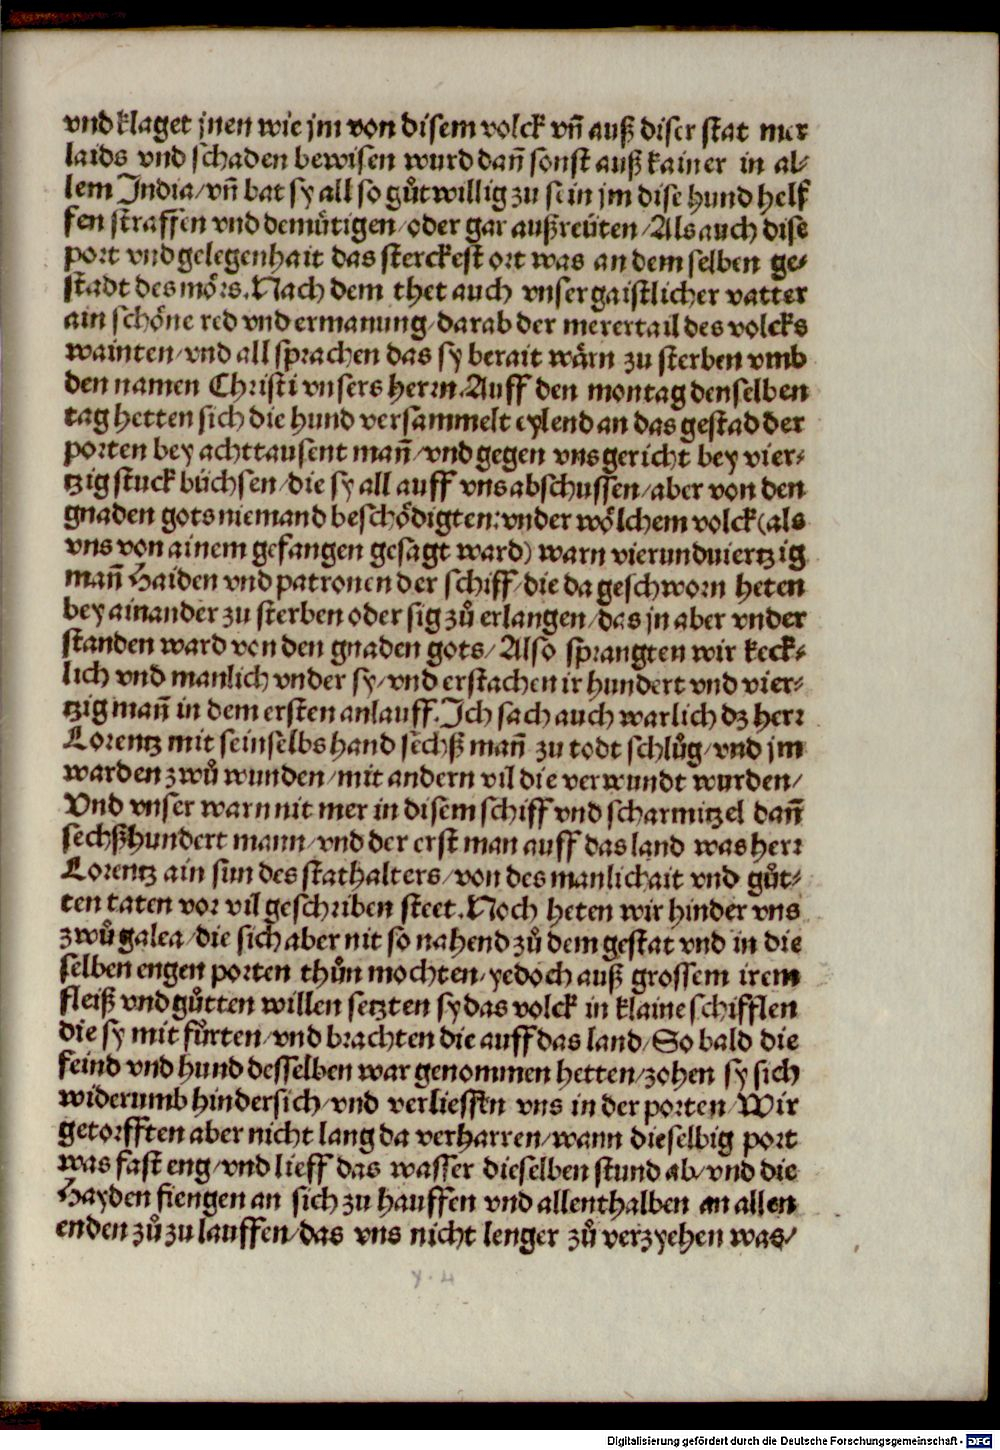 vnd klaget jnen wie jm von disem volck vn̄ auß diser stat mer
laids vnd schaden bewisen wurd dan̄ sonst auß kainer in al⸗
lem India/vn̄ bat sy all so gůtwillig zu sein jm dise hund helf
fen straffen vnd demütigen/oder gar außreüten/Als auch dise
port vnd gelegenhait das sterckest ort was an dem selben ge⸗
stadt des mörs. Nach dem thet auch vnser gaistlicher vatter
ain schöne red vnd ermanung/darab der merertail des volcks
wainten/vnd all sprachen das sy berait wärn zu sterben vmb
den namen Christi vnsers herrn. Auff den montag denselben
tag hetten sich die hund versammelt eylend an das gestad der
porten bey achttausent man̄/vnd gegen vns gericht bey vier⸗
tzig stuck büchsen/die sy all auff vns abschussen/aber von den
gnaden gots niemand beschödigten: vnder wölchem volck (als
vns von ainem gefangen gesagt ward) warn vierundviertzig
man̄ Haiden vnd patronen der schiff/die da geschworn heten
bey ainander zu sterben oder sig zů erlangen/das jn aber vnder
standen ward von den gnaden gots/Also sprangten wir keck⸗
lich vnd manlich vnder sy/vnd erstachen ir hundert vnd vier⸗
tzig man̄ in dem ersten anlauff. Ich sach auch warlich dz herr
Lorentz mit seinselbs hand sechß man̄ zu todt schlůg/vnd jm
warden zwů wunden/mit andern vil die verwundt wurden/
Vnd vnser warn nit mer in disem schiff vnd scharmitzel dan̄
sechßhundert mann/vnd der erst man auff das land was herr
Lorentz ain sun des stathalters/von des manlichait vnd gůt⸗
ten taten vor vil geschriben steet. Noch heten wir hinder vns
zwů galea/die sich aber nit so nahend zů dem gestat vnd in die
selben engen porten thůn mochten/yedoch auß grossem irem
fleiß vnd gůtten willen setzten sy das volck in klaine schifflen
die sy mit fůrten/vnd brachten die auff das land/So bald die
feind vnd hund desselben war genommen hetten/zohen sy sich
widerumb hindersich/vnd verliessen vns in der porten/Wir
getorfften aber nicht lang da verharren/wann dieselbig port
was fast eng/vnd lieff das wasser dieselben stund ab/vnd die
Hayden fiengen an sich zu hauffen vnd allenthalben an allen
enden zů zu lauffen/das vns nicht lenger zů verzyehen was/
y. 4
Digitalisierung gefördert durch die Deutsche Forschungsgemeinschaft - DFG